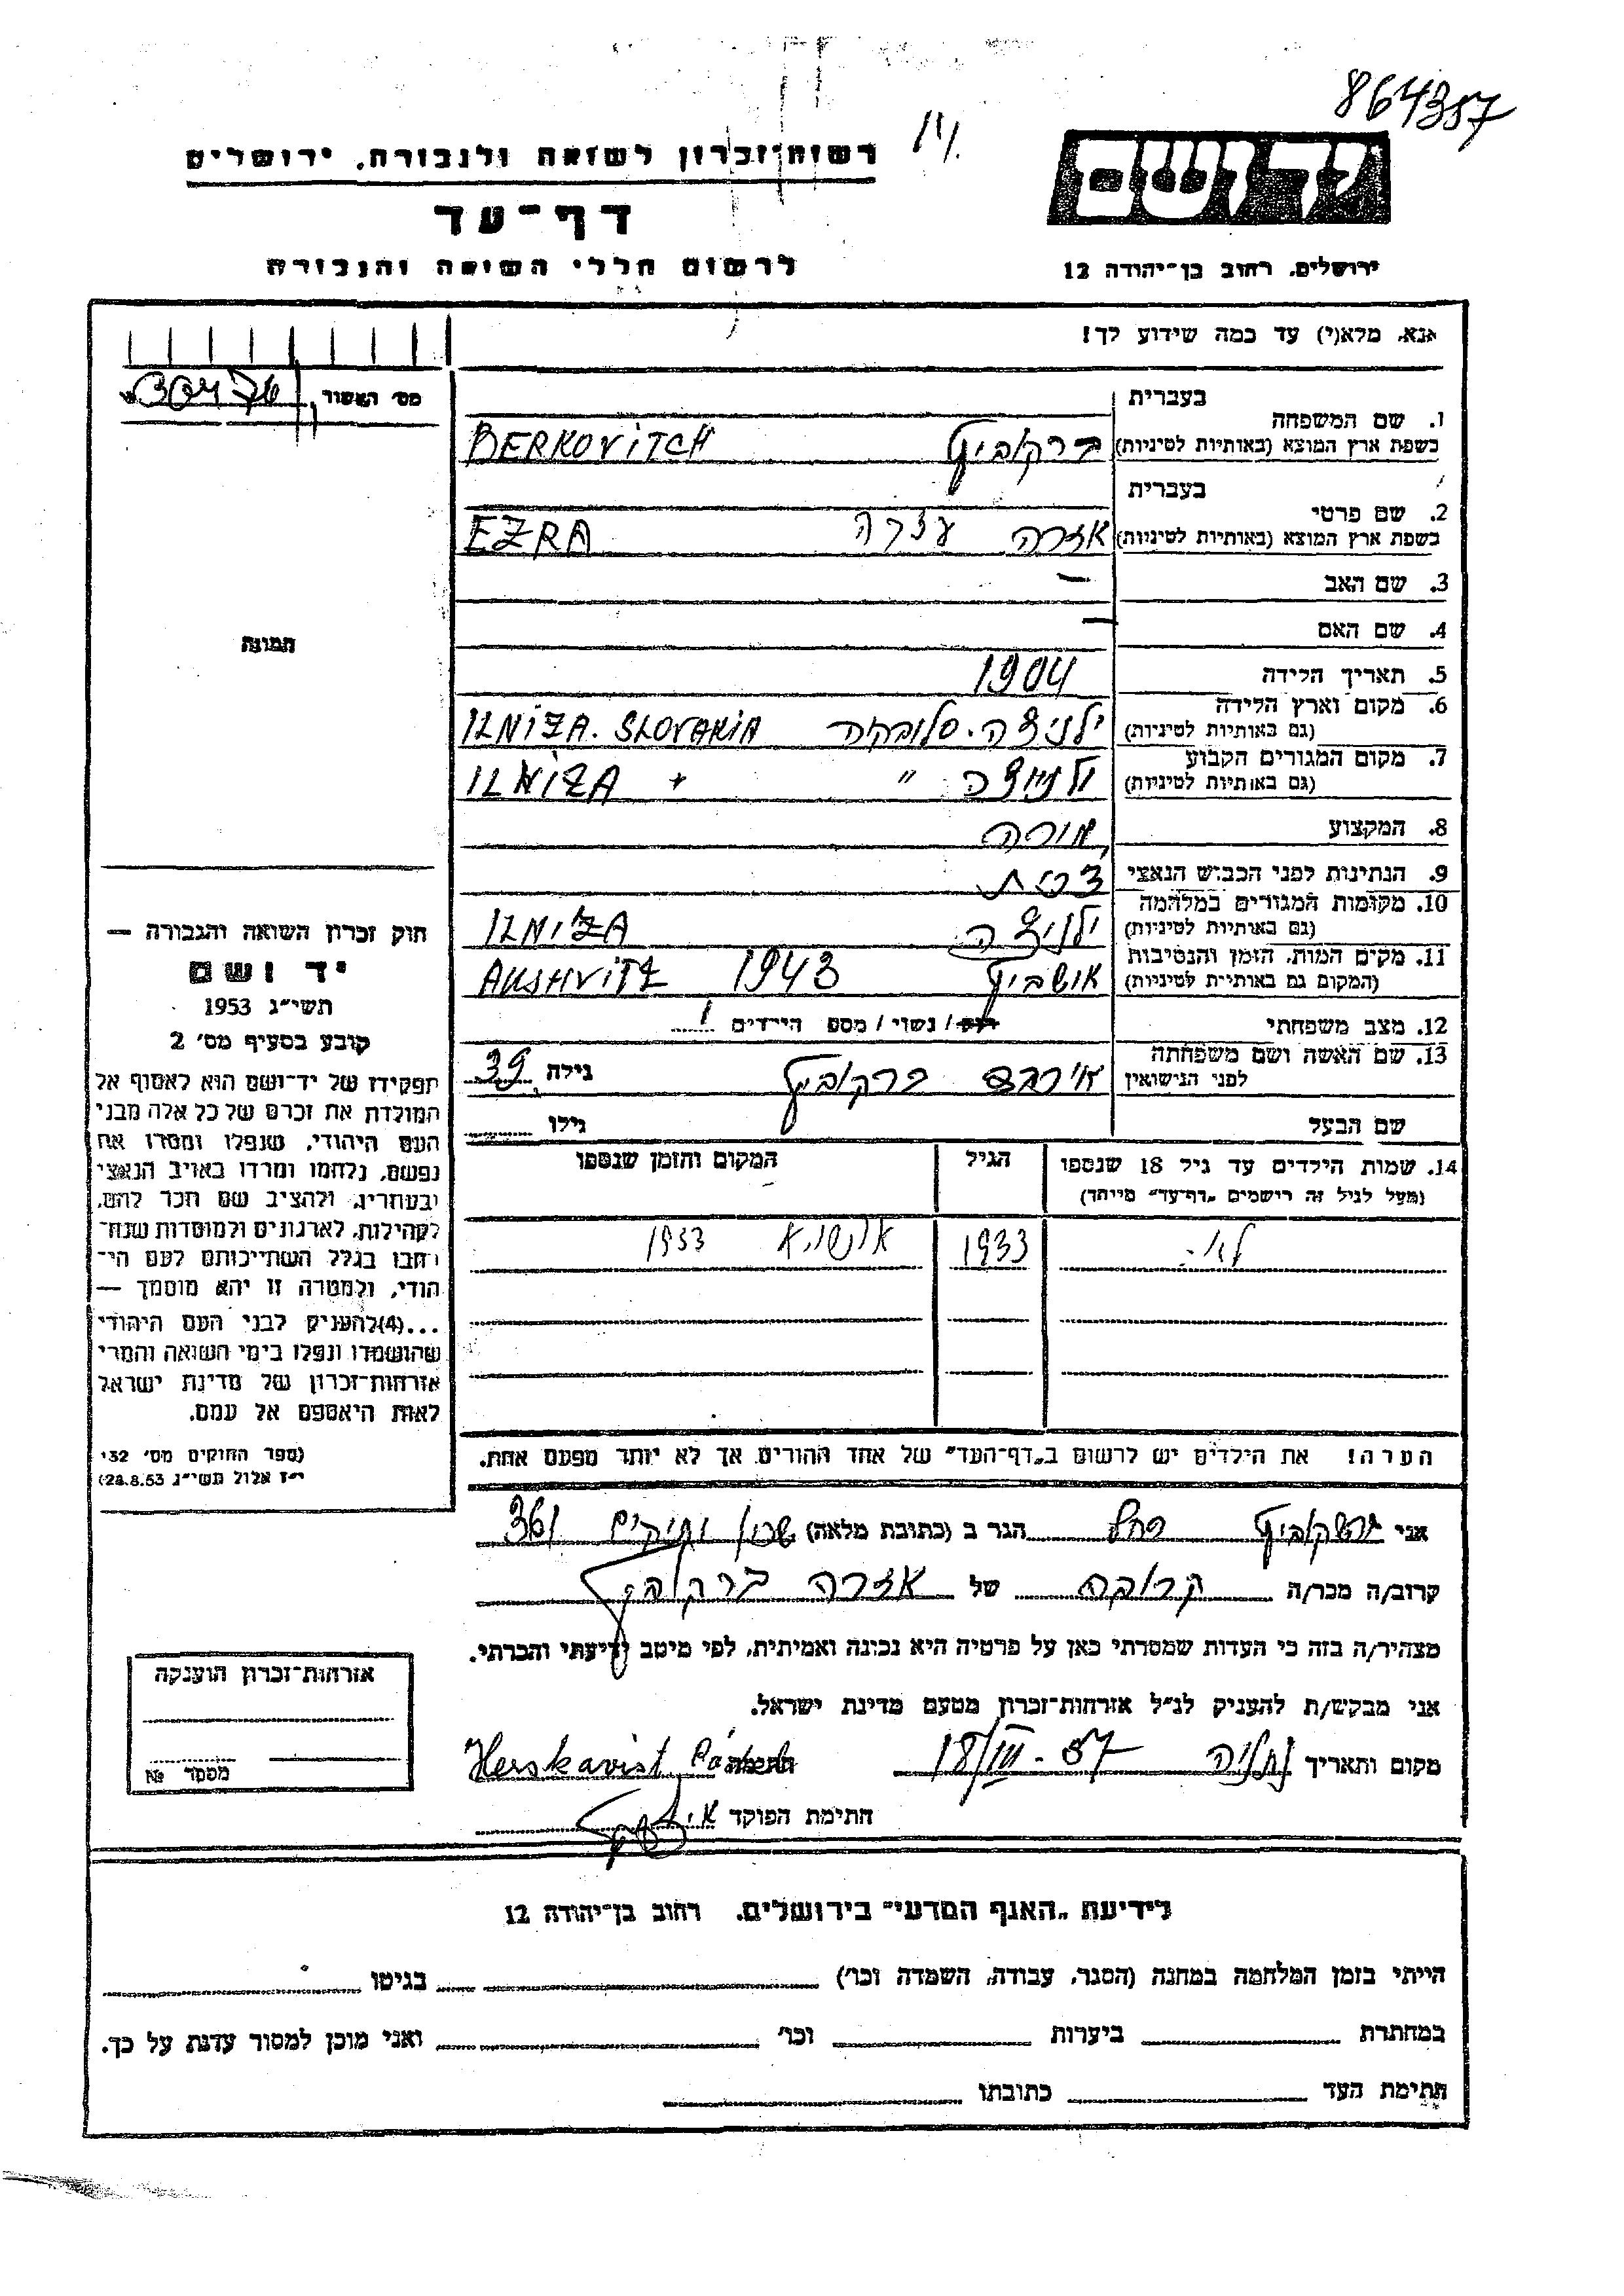 864357
רשות־זכרון לשואה ולגבורה, ירושלים
יד ושם
דף־עד
לרשום חללי השואה והגבורה
ירושלים, רחוב בן־יהודה 12
אנא, מלא(י) עד כמה שידוע לך!
מס׳ האשור
1. שם המשפחה
בעברית
בשפת ארץ המוצא (באותיות לטיניות)
ברקוביץ BERKOVITCH
2. שם פרטי
בעברית
בשפת ארץ המוצא (באותיות לטיניות)
אזרה עזרה EZRA
3. שם האב —
4. שם האם —
5. תאריך הלידה 1904
6. מקום וארץ הלידה
(גם באותיות לטיניות)
ילניצה. סלובקיה ILNIZA. SLOVAKIA
7. מקום המגורים הקבוע
(גם באותיות לטיניות)
ילניצה " ILNIZA
8. המקצוע
9. הנתינות לפני הכבוש הנאצי
10. מקומות המגורים במלחמה
(גם באותיות לטיניות)
ילניצה ILNIZA
11. מקום המות, הזמן והנסיבות
(המקום גם באותיות לטיניות)
אושביץ 1943 AUSHVITZ
12. מצב משפחתי
רווק / נשוי / מספר הילדים 1
13. שם האשה ושם משפחתה
לפני הנישואין
ברקוביץ גילה 39
שם הבעל גילו
14. שמות הילדים עד גיל 18 שנספו
(מעל לגיל זה רישמים „דף־עד״ מייוחד)
הגיל
המקום והזמן שנספו
1933 1933
הערה! את הילדים יש לרשום ב„דף־העד״ של אחד ההורים אך לא יותר מפעם אחת.
תמונה
חוק זכרון השואה והגבורה —
יד ושם
תשי״ג 1953
קובע בסעיף מס׳ 2
תפקידו של יד־ושם הוא לאסוף אל
המולדת את זכרם של כל אלה מבני
העם היהודי, שנפלו ומסרו את
נפשם, נלחמו ומרדו באויב הנאצי
ובעוזריו, ולהציב שם וזכר להם,
לקהילות, לארגונים ולמוסדות שנח־
רבו בגלל השתייכותם לעם הי־
הודי, ולמטרה זו יהא מוסמך —
...(4)להעניק לבני העם היהודי
שהושמדו ונפלו בימי השואה והמרי
אזרחות־זכרון של מדינת ישראל
לאות היאספם אל עמם.
(ספר החוקים מס׳ 132
י״ז אלול תשי״ג 28.8.53)
אני הרשקוביץ הגר ב (כתובת מלאה) 36/
קרוב/ה מכר/ה קרובה של אזרה ברקוביץ
מצהיר/ה בזה כי העדות שמסרתי כאן על פרטיה היא נכונה ואמיתית, לפי מיטב ידיעתי והכרתי.
אני מבקש/ת להעניק לנ״ל אזרחות־זכרון מטעם מדינת ישראל.
מקום ותאריך נתניה 18/III-57 חתימה
חתימת הפוקד
אזרחות־זכרון הוענקה
מספר №
לידיעת „האגף המדעי״ בירושלים, רחוב בן־יהודה 12
הייתי בזמן המלחמה במחנה (הסגר, עבודה, השמדה וכו׳) בגיטו
במחתרת ביערות וכו׳ ואני מוכן למסור עדות על כך.
חתימת העד כתובתו